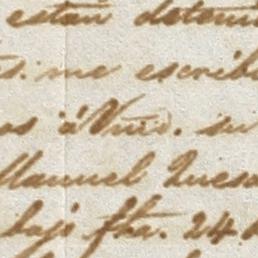 están deten
me escrib
os á Vmd. su
Manuel Quesa
bajo fha. 24